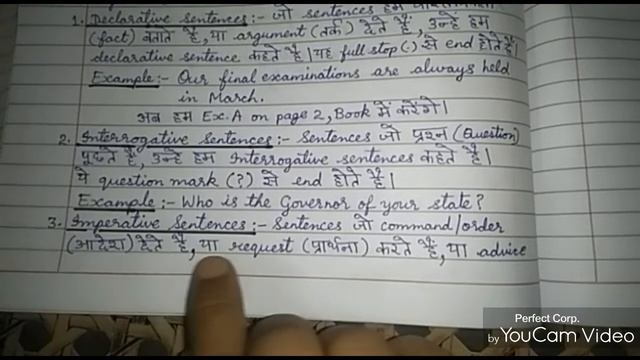 1. Declarative sentences:- जो sentences हम
(fact) बताते है, या argument (तर्क) देते है, उन्हे हम
declarative sentence कहते है। यह full stop (.) से end होते है।
Example:- Our final examinations are always held
in March.
अब हम Ex. A on page 2, Book में करेंगे।
2. Interrogative Sentences:- Sentences जो प्रश्न (Question)
पूछते है, उन्हे हम Interrogative sentences कहते है।
ये question mark (?) से end होते है।
Example:- Who is the Governor of your state?
3. Imperative Sentences:- Sentences जो command/order
(आदेश) देते है, या request (प्रार्थना) करते है, या advice
Perfect Corp.
by YouCam Video